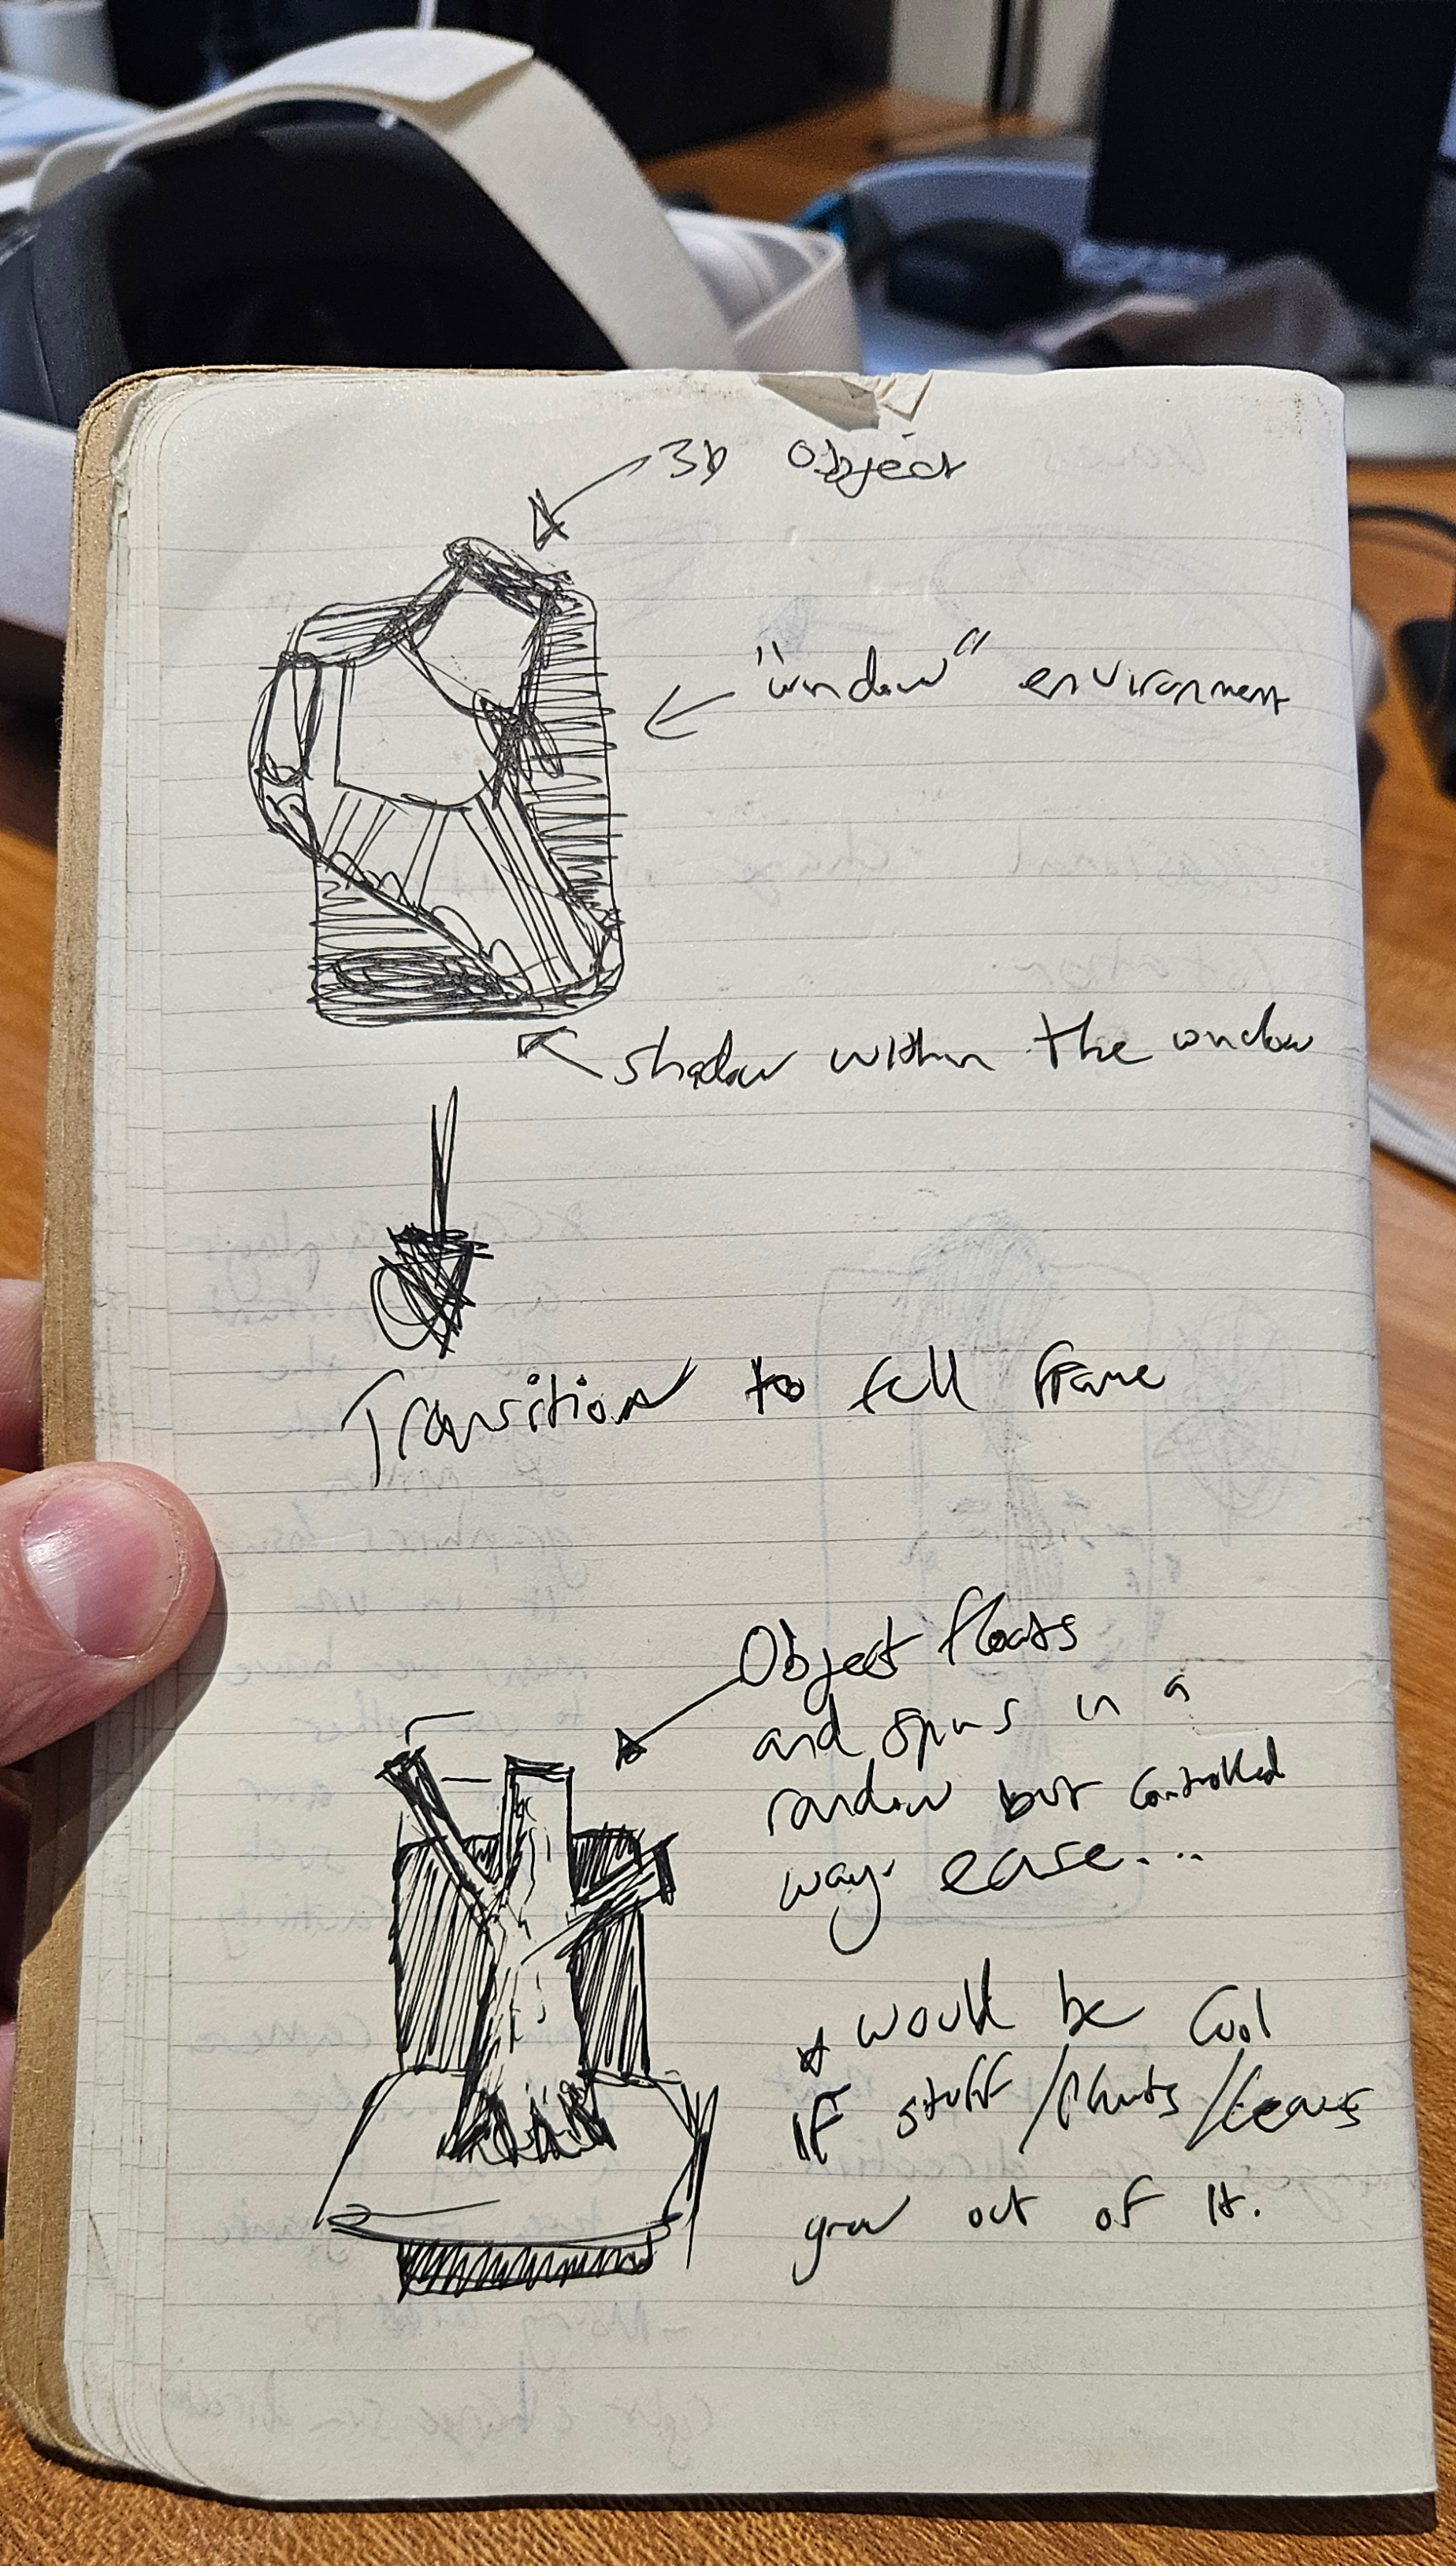 3D Object
"window" environment
shadow within the window
Transition to full frame
Object floats
and spins in a
random but controlled
way. ease...
* would be cool
if stuff/plants/leaves
grow out of it.